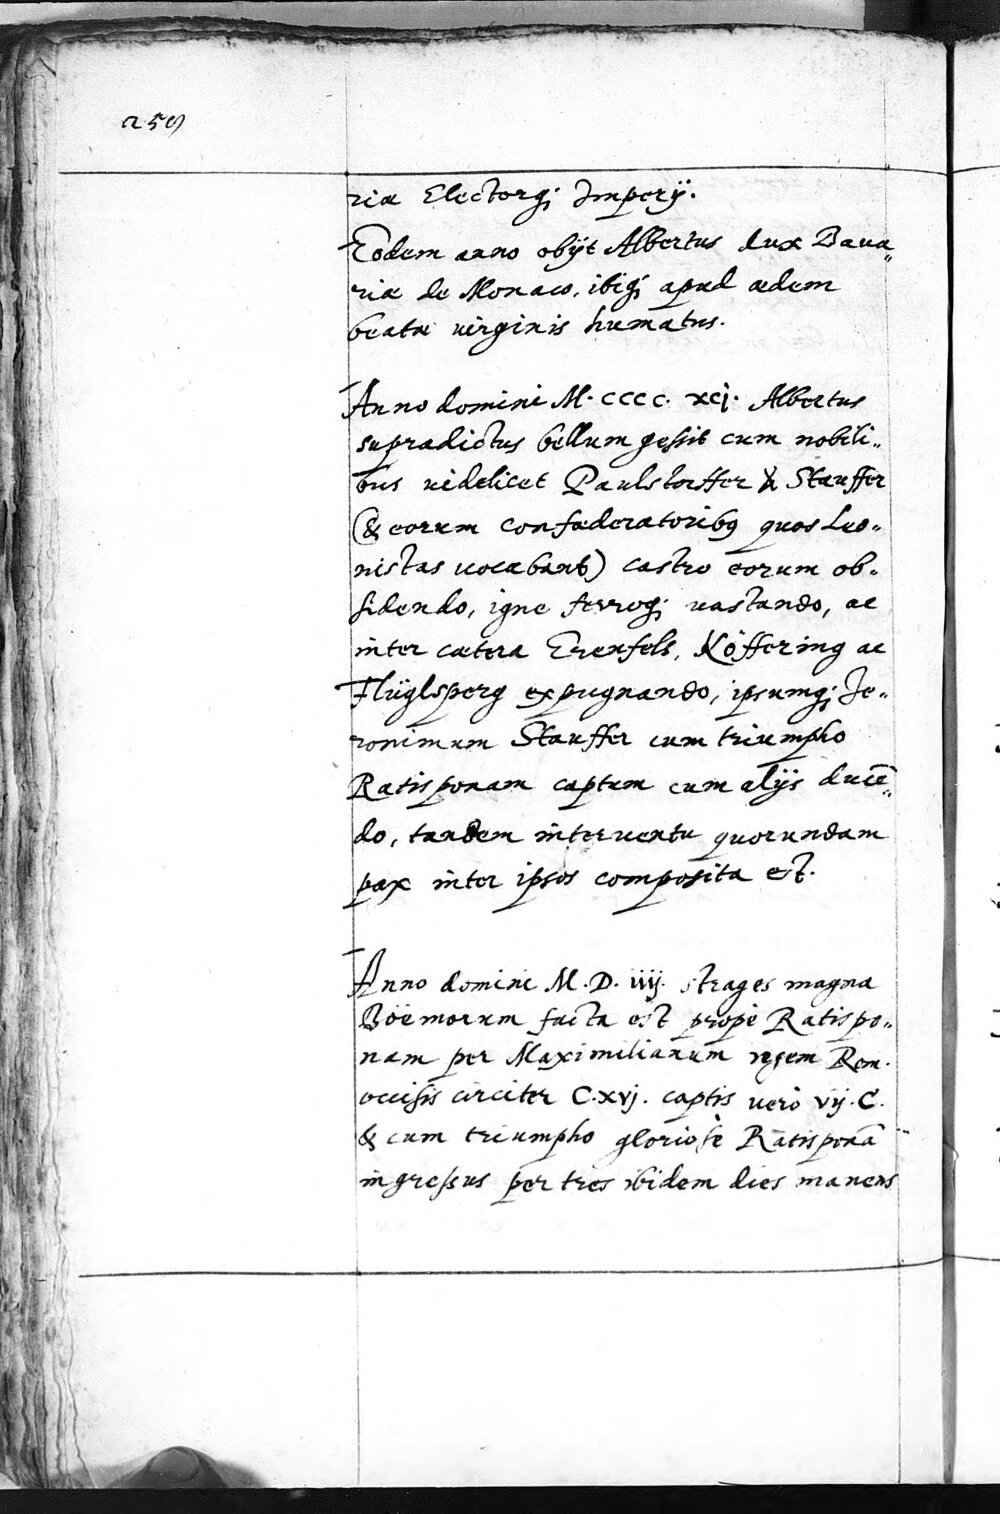 259
riæ Electorq; Imperij.
Eodem anno obijt Albertus dux Baua„
riæ de Monaco, ibiq; apud ædem
beatæ virginis humatus.
Anno domini M. CCCC. xcj. Albertus
supradictus bellum gessit cum nobili„
bus uidelicet Paulstorffer & Stauffer
(& eorum confœderatoribq quos Leo„
nistas uocabant) castro eorum ob„
sidendo, igne ferroq; uastando, ac
inter cætera Erenfels, Köffering ac
Flüglsperg expugnando, ipsumq; Je„
ronimum Stauffer cum triumpho
Ratisponam captum cum alijs ducē„
do, tandem interuentu quorundam
pax inter ipsos composita est.
Anno domini M. D. iiij. strages magna
Böemorum facta est prope Ratispo„
nam per Maximilianum regem Rom.
occisis circiter C.xvj. captis uero vij. C.
& cum triumpho gloriose Ratisponā
ingressus per tres ibidem dies manens